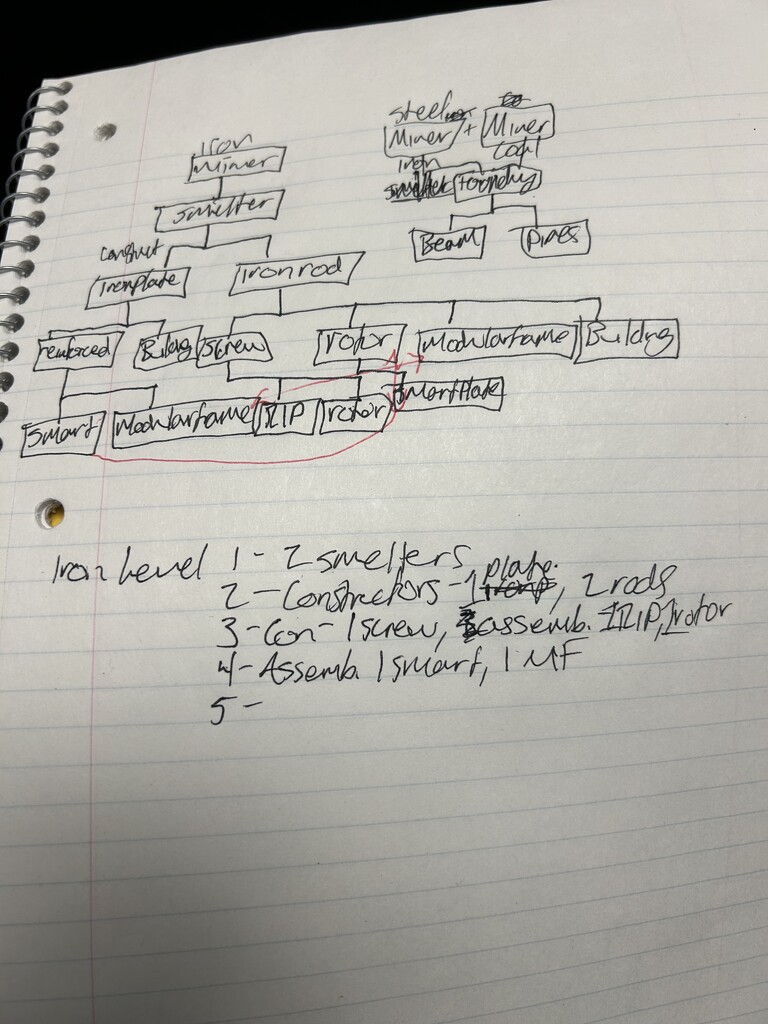 Iron
Miner
Smelter
Construct
Iron plate
Iron rod
reinforced
Buildng
Screw
rotor
Modularframe
Buildng
Smart
Modularframe
RIP
rotor
Smart Plate
Steel
Miner + Miner
iron
coal
smelter
foundry
Beam
Pipes
Iron Level 1 - 2 smelters
2 - Constructors - 1 plate, 2 rods
3 - Con - 1 screw, assemb. 1 RIP, 1 rotor
4 - Assemb. 1 smart, 1 MF
5 -